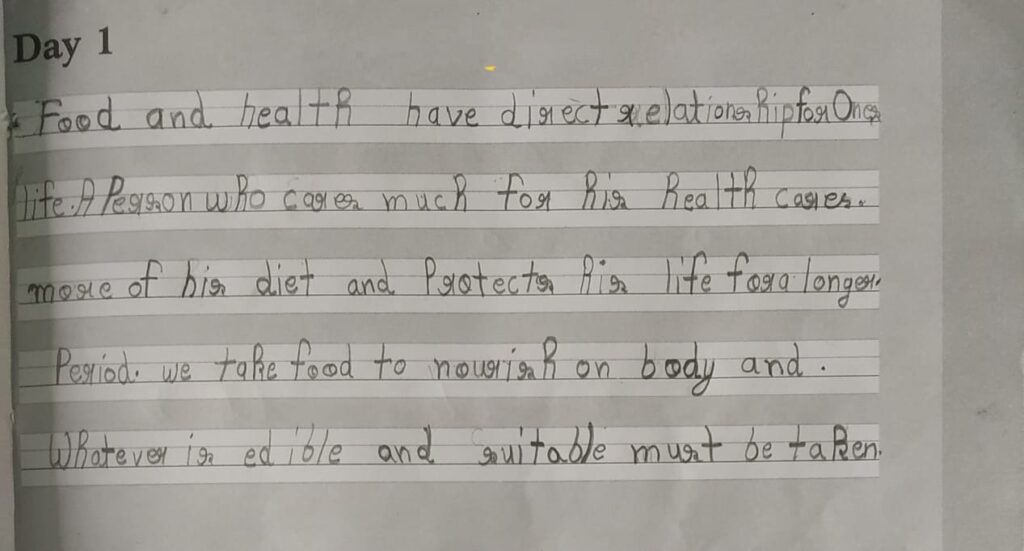 Day 1
Food and health have direct relationship for Ones
life. A Person who cares much for his health cares.
more of his diet and Protects his life for a longer.
Period. we take food to nourish on body and .
Whatever is edible and suitable must be taken.